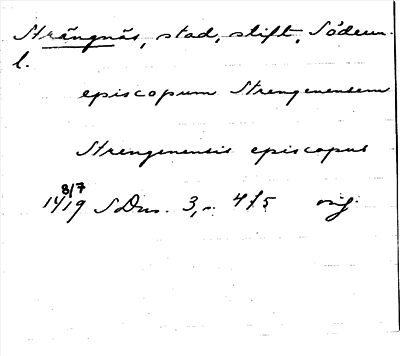 Strängnäs, stad, stift, Söderm.
l.
episcopum Strengenensem
Strengenensis episcopus
8/7
1419 SDns. 3, s. 475 orig.